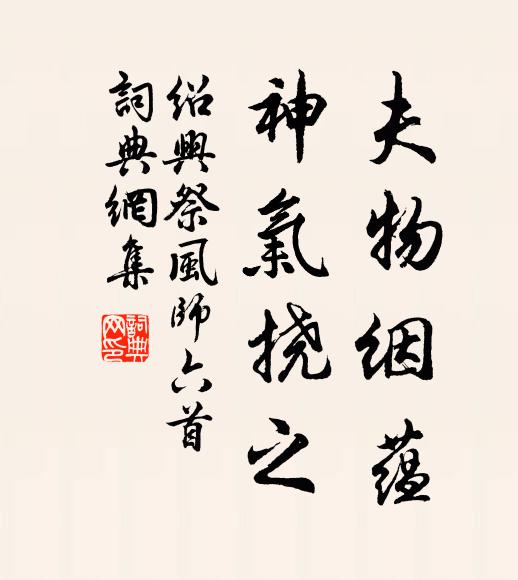 夫物絪蘊
神氣挠之
绍興祭風師六首
詞典網集
詞典网印